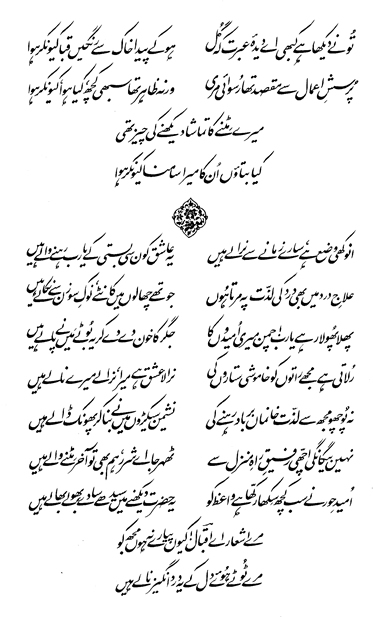 تُو نے دیکھا ہے کبھی اے دیدۂ عبرت کہ گُل ہو کے پیدا خاک سے رنگیں قبا کیونکر ہوا
پُرسشِ اعمال سے مقصد تھا رُسوائی مری ورنہ ظاہر تھا سبھی کچھ کیا ہوا کیونکر ہوا
میرے مٹنے کا تماشا دیکھنے کی چیز تھی
کیا بتاؤں اُن کا میرا سامنا کیونکر ہوا
انوکھی وضع ہے سارے زمانے سے نرالے ہیں یہ عاشق کون سی بستی کے یارب رہنے والے ہیں
علاجِ درد میں بھی درد کی لذّت پہ مرتا ہُوں جو تھے چھالوں میں کانٹے نوکِ سوزن سے نکالے ہیں
پھلا پھولا رہے یارب! چمن میری اُمیدوں کا جگر کا خون دے دے کر یہ بُوٹے میں نے پالے ہیں
رُلاتی ہے مجھے راتوں کو خاموشی ستاروں کی نرالا عشق ہے میرا نرالے میرے نالے ہیں
نہ پُوچھو مجھ سے لذّت خانماں برباد رہنے کی نشیمن سیکڑوں میں نے بنا کر پھونک ڈالے ہیں
نہیں بیگانگی اچھی رفیقِ راہِ منزل سے ٹھہر جا اے شرر ہم بھی تو آخر مٹنے والے ہیں
اُمیدِ حور نے سب کچھ سکھا رکھا ہے واعظ کو یہ حضرت دیکھنے میں سیدھے سادے بھولے بھالے ہیں
مرے اشعار اے اقبالؔ کیوں پیارے نہ ہوں مجھ کو
مرے ٹوٹے ہوئے دل کے یہ درد انگیز نالے ہیں